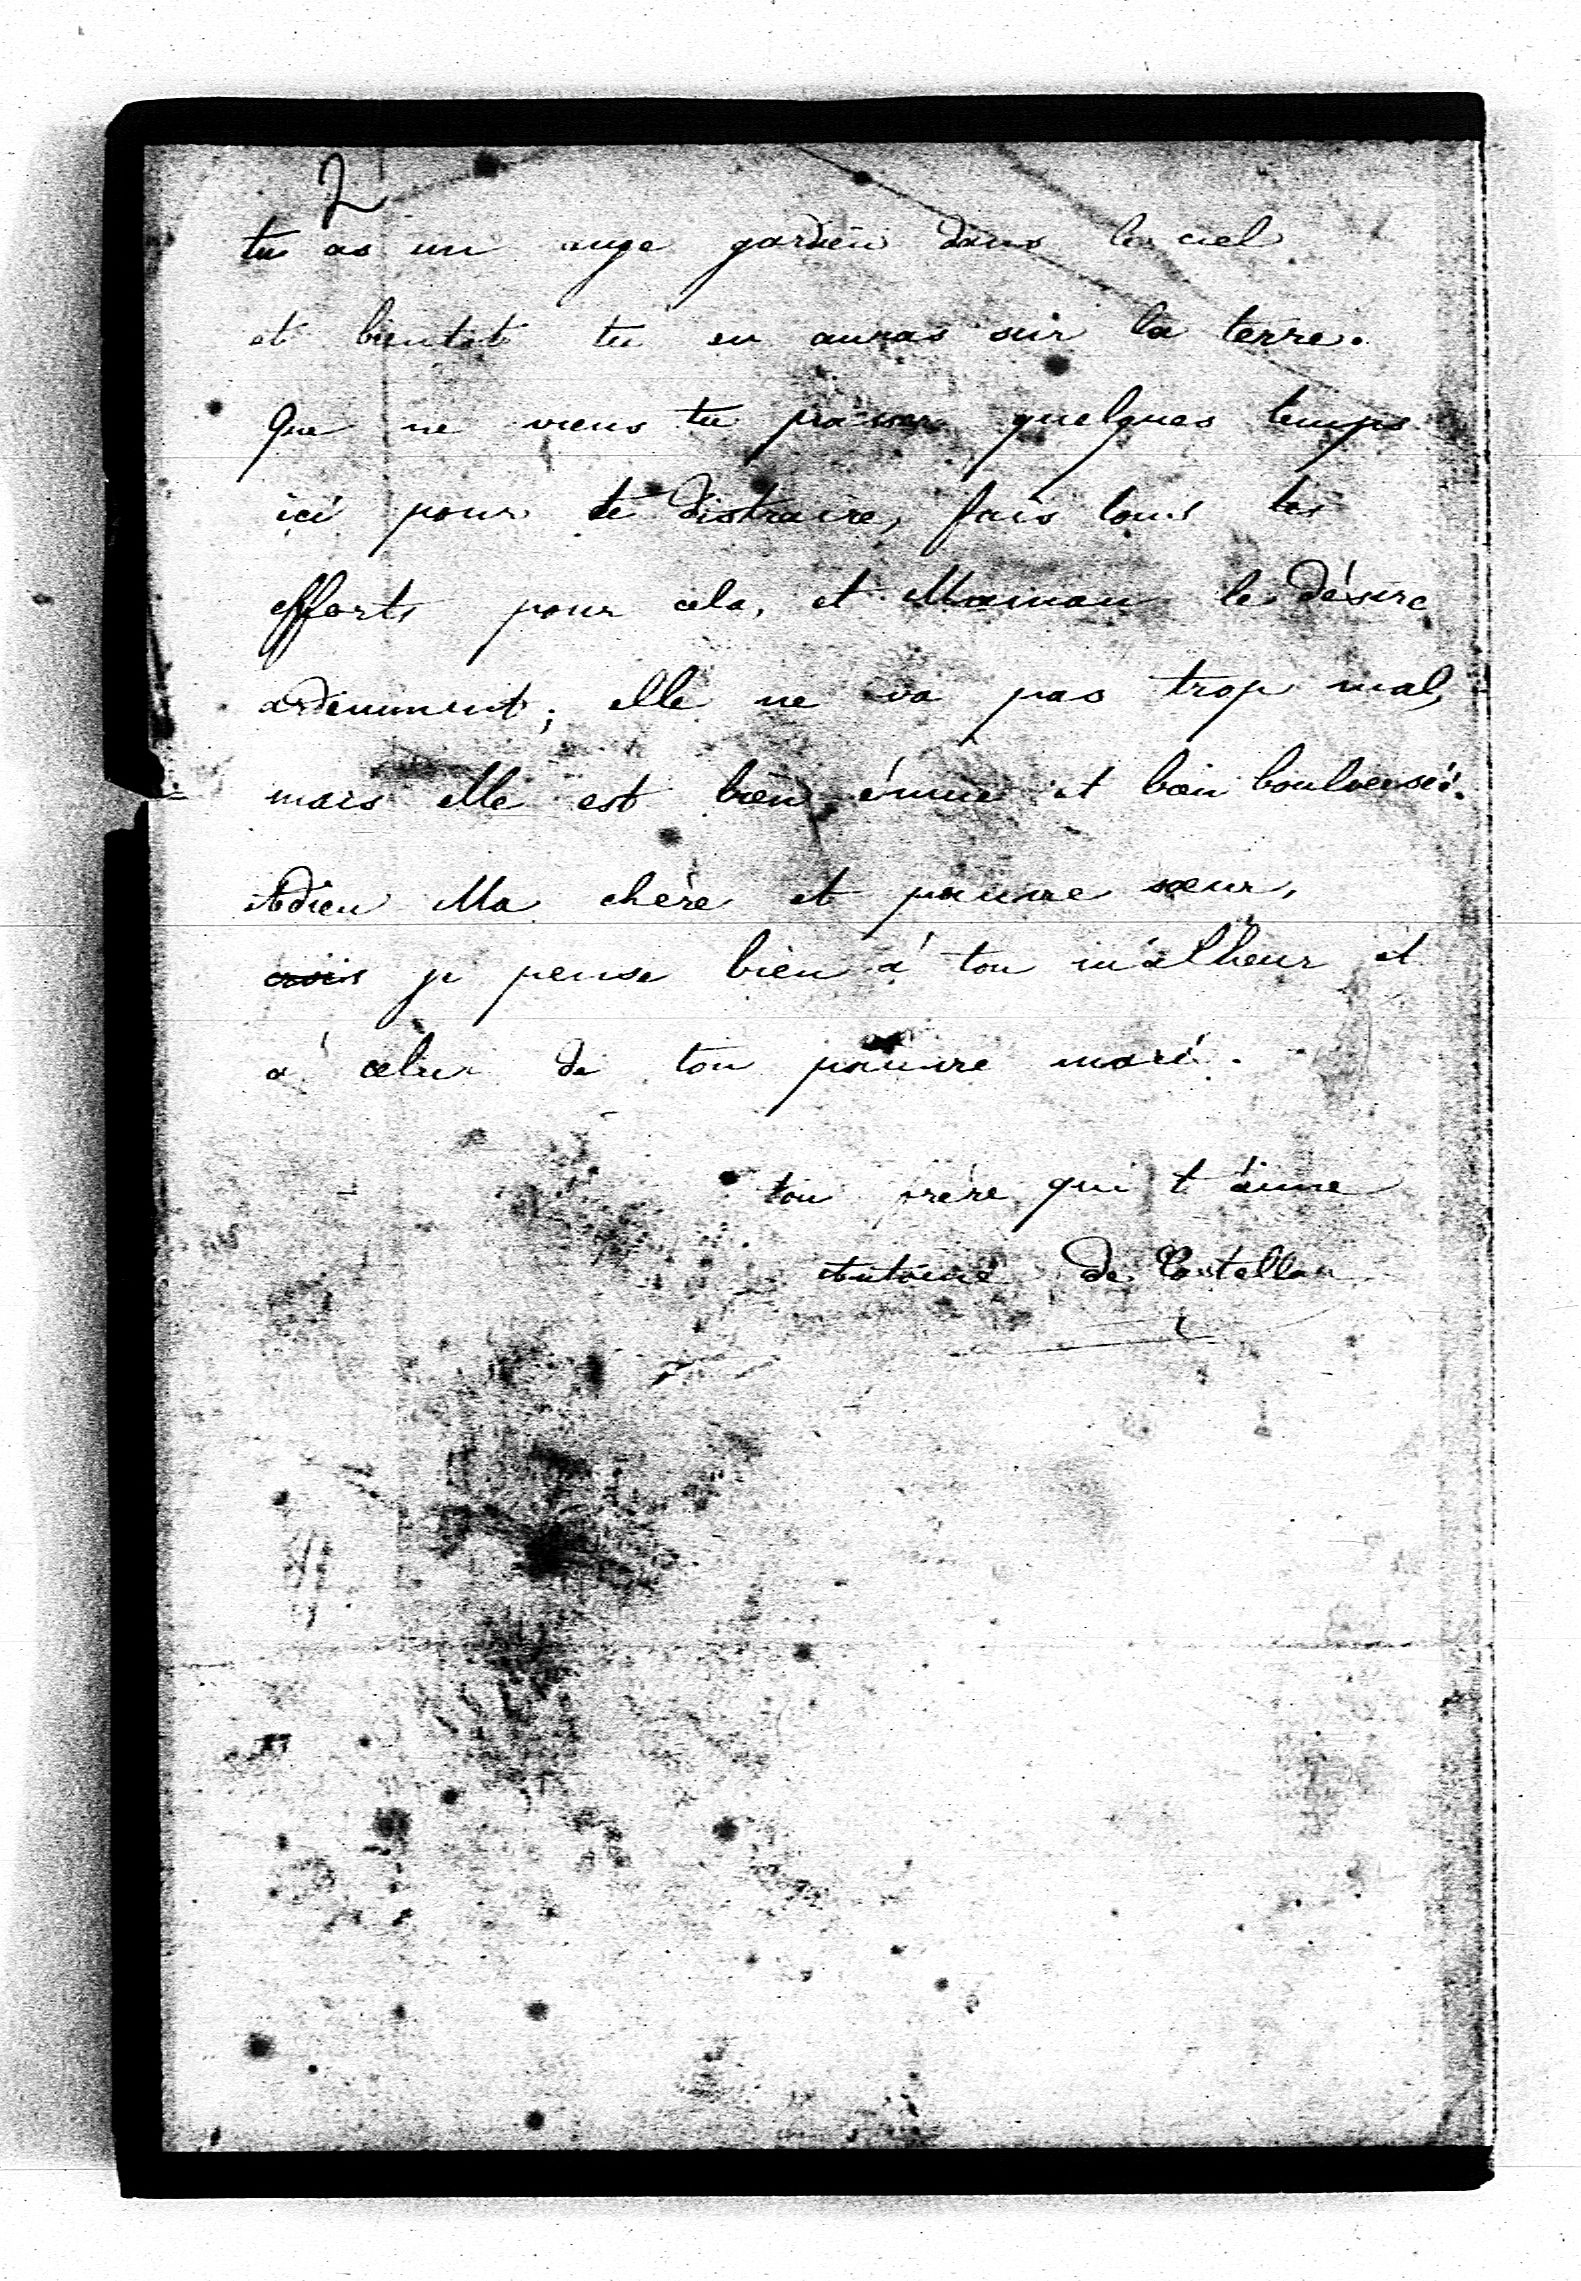 2
tu as un ange gardien dans le ciel
et bientot tu en auras sur la terre.
Que ne viens tu passer quelques temps
ici pour te distraire, fais tous tes
efforts pour cela, et Maman le désire
ardemment; elle ne va pas trop mal,
mais elle est bien émue et bien boulversée.
Adieu Ma chère et pauvre soeur,
crois je pense bien à ton malheur et
à celui de ton pauvre mari.
ton frère qui t'aime
Antoine de Castellan